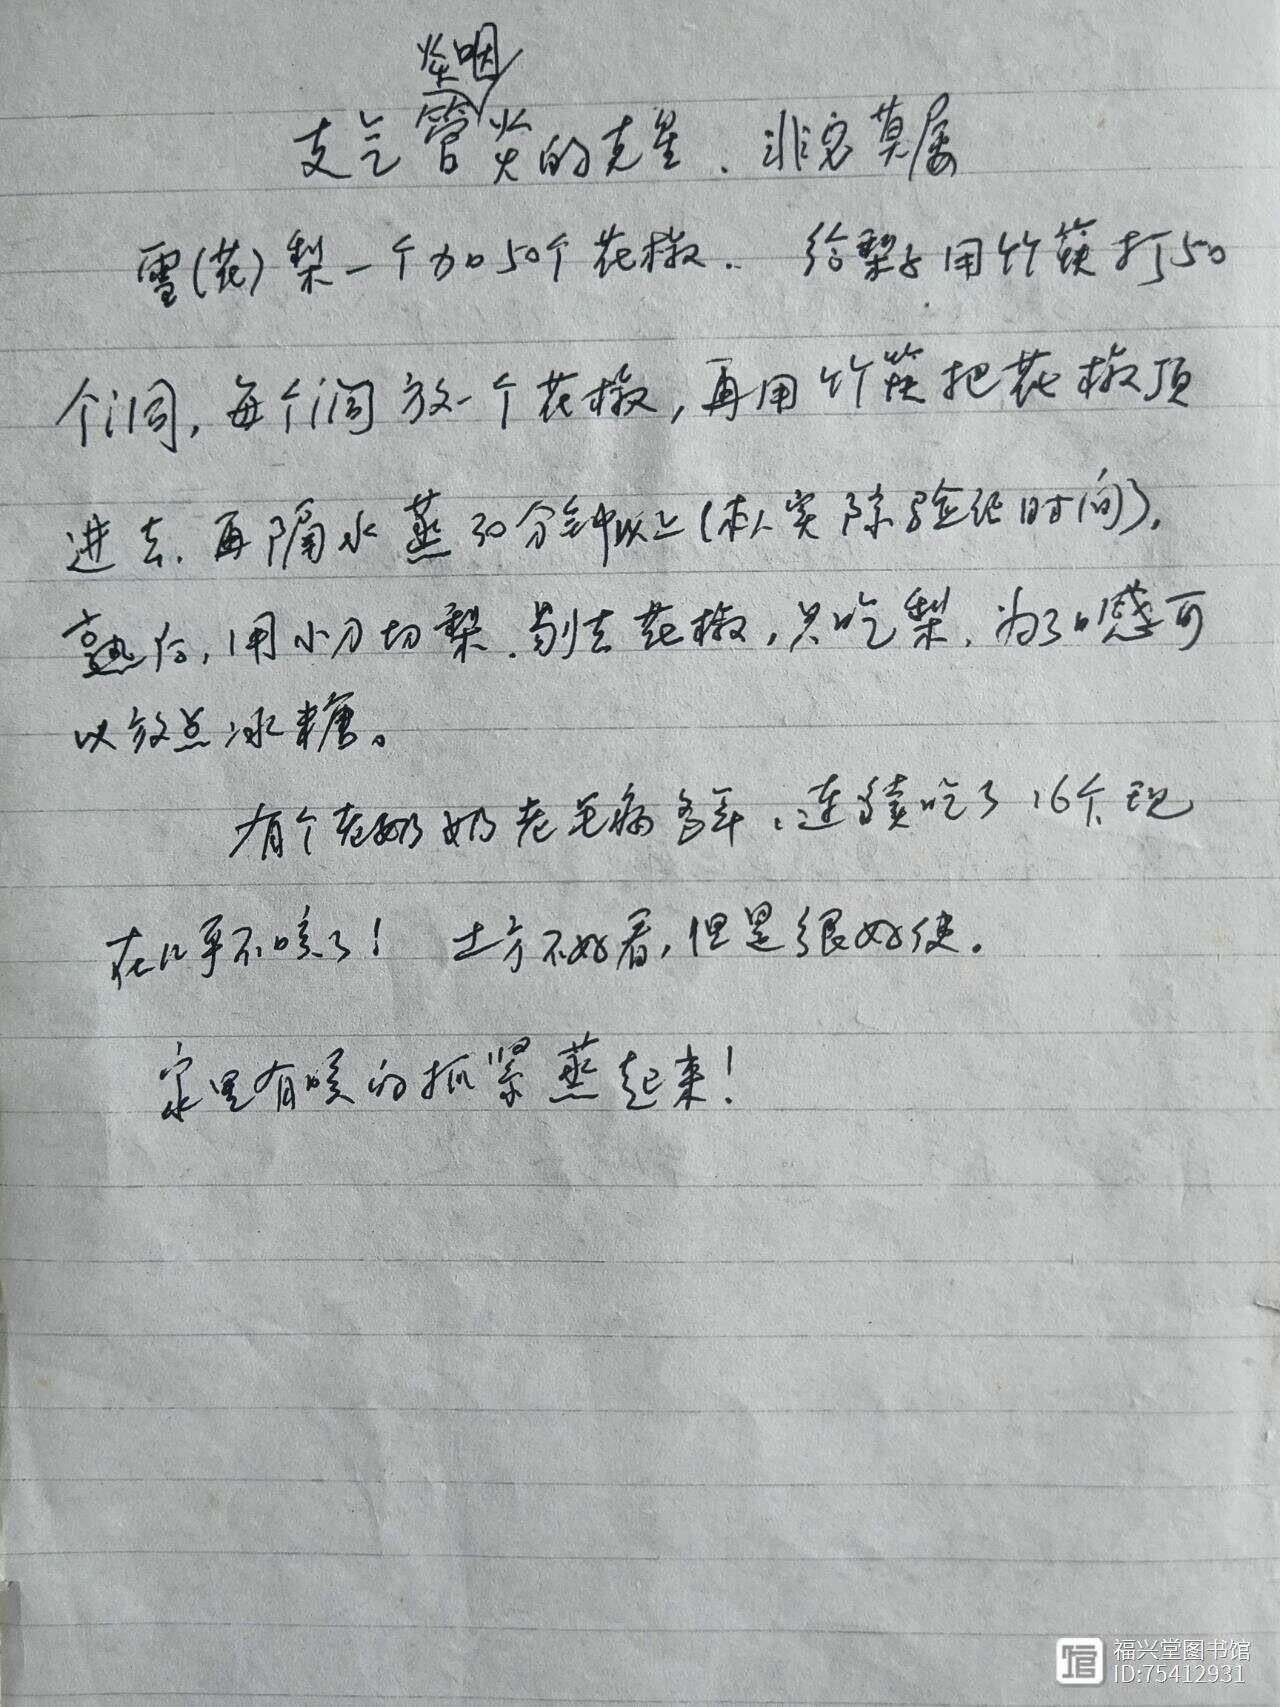 炎咽
支气管炎的克星、非它莫属
雪(花)梨一个加50个花椒. 给梨子用竹筷打50
个洞,每个洞放一个花椒,再用竹筷把花椒顶
进去.再隔水蒸30分钟以上(本人实际验经时间),
熟后,用小刀切梨.剔去花椒,只吃梨,为了口感可
以放点冰糖。
有个老奶奶老毛病多年、连续吃了16个,现
在几乎不咳了! 土方不好看,但是很好使。
家里有咳的抓紧蒸起来!
福兴堂图书馆
ID:75412931